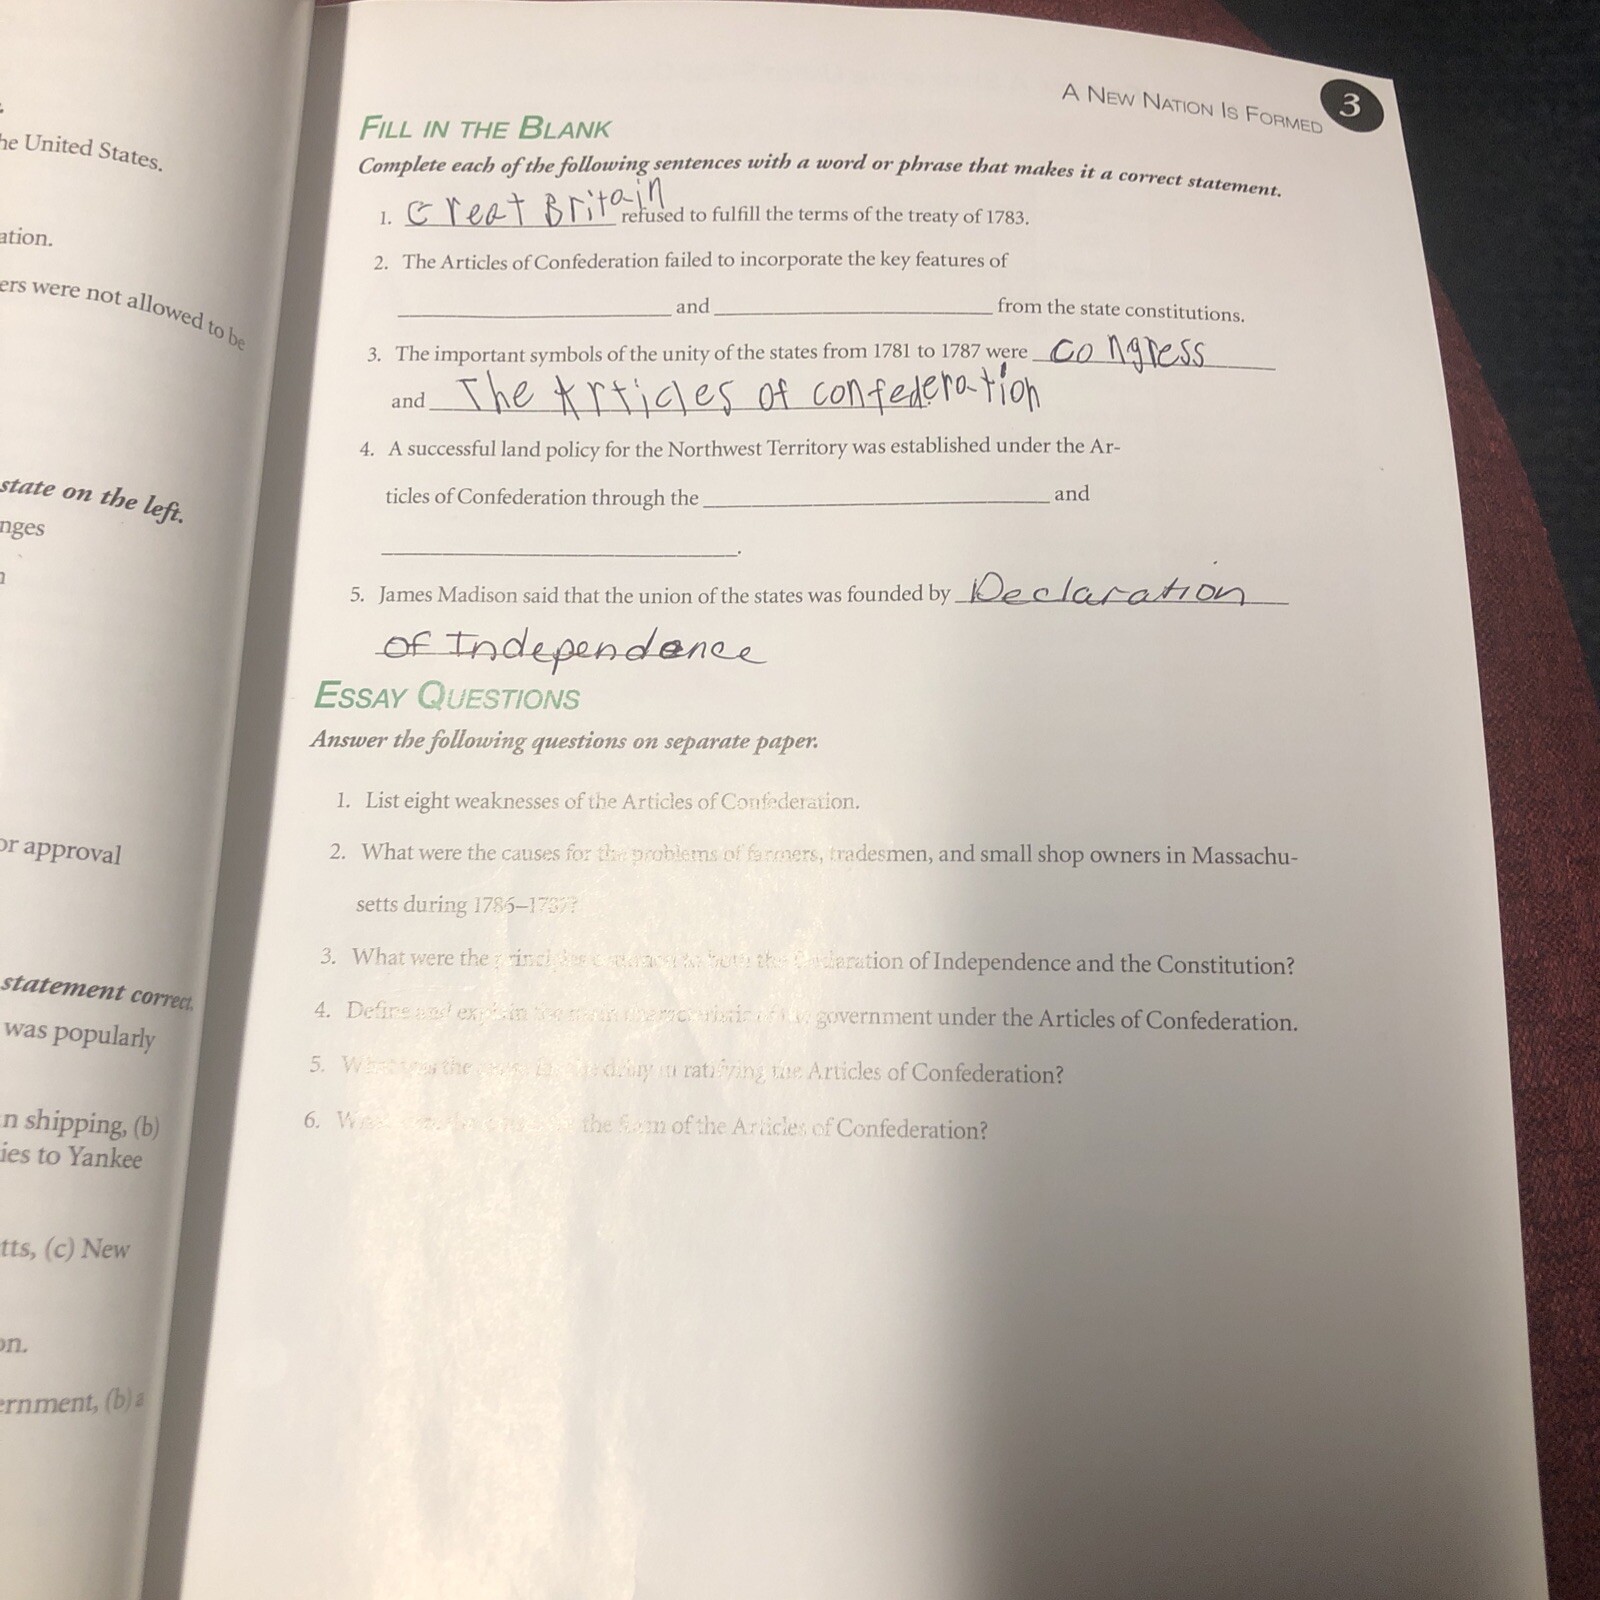 he United States.
ation.
ers were not allowed to be
state on the left.
nges
or approval
statement correct.
was popularly
n shipping, (b)
ies to Yankee
tts, (c) New
on.
ernment, (b) a
A NEW NATION IS FORMED 3
FILL IN THE BLANK
Complete each of the following sentences with a word or phrase that makes it a correct statement.
1. Great Britain refused to fulfill the terms of the treaty of 1783.
2. The Articles of Confederation failed to incorporate the key features of
and from the state constitutions.
3. The important symbols of the unity of the states from 1781 to 1787 were congress
and The Articles of confederation
4. A successful land policy for the Northwest Territory was established under the Ar-
ticles of Confederation through the and
5. James Madison said that the union of the states was founded by Declaration
of Independence
ESSAY QUESTIONS
Answer the following questions on separate paper.
1. List eight weaknesses of the Articles of Confederation.
2. What were the causes for the problems of farmers, tradesmen, and small shop owners in Massachu-
setts during 1786–1787?
3. What were the principles common to both the Declaration of Independence and the Constitution?
4. Define and explain the main government under the Articles of Confederation.
5. the delay in ratifying the Articles of Confederation?
6. the form of the Articles of Confederation?